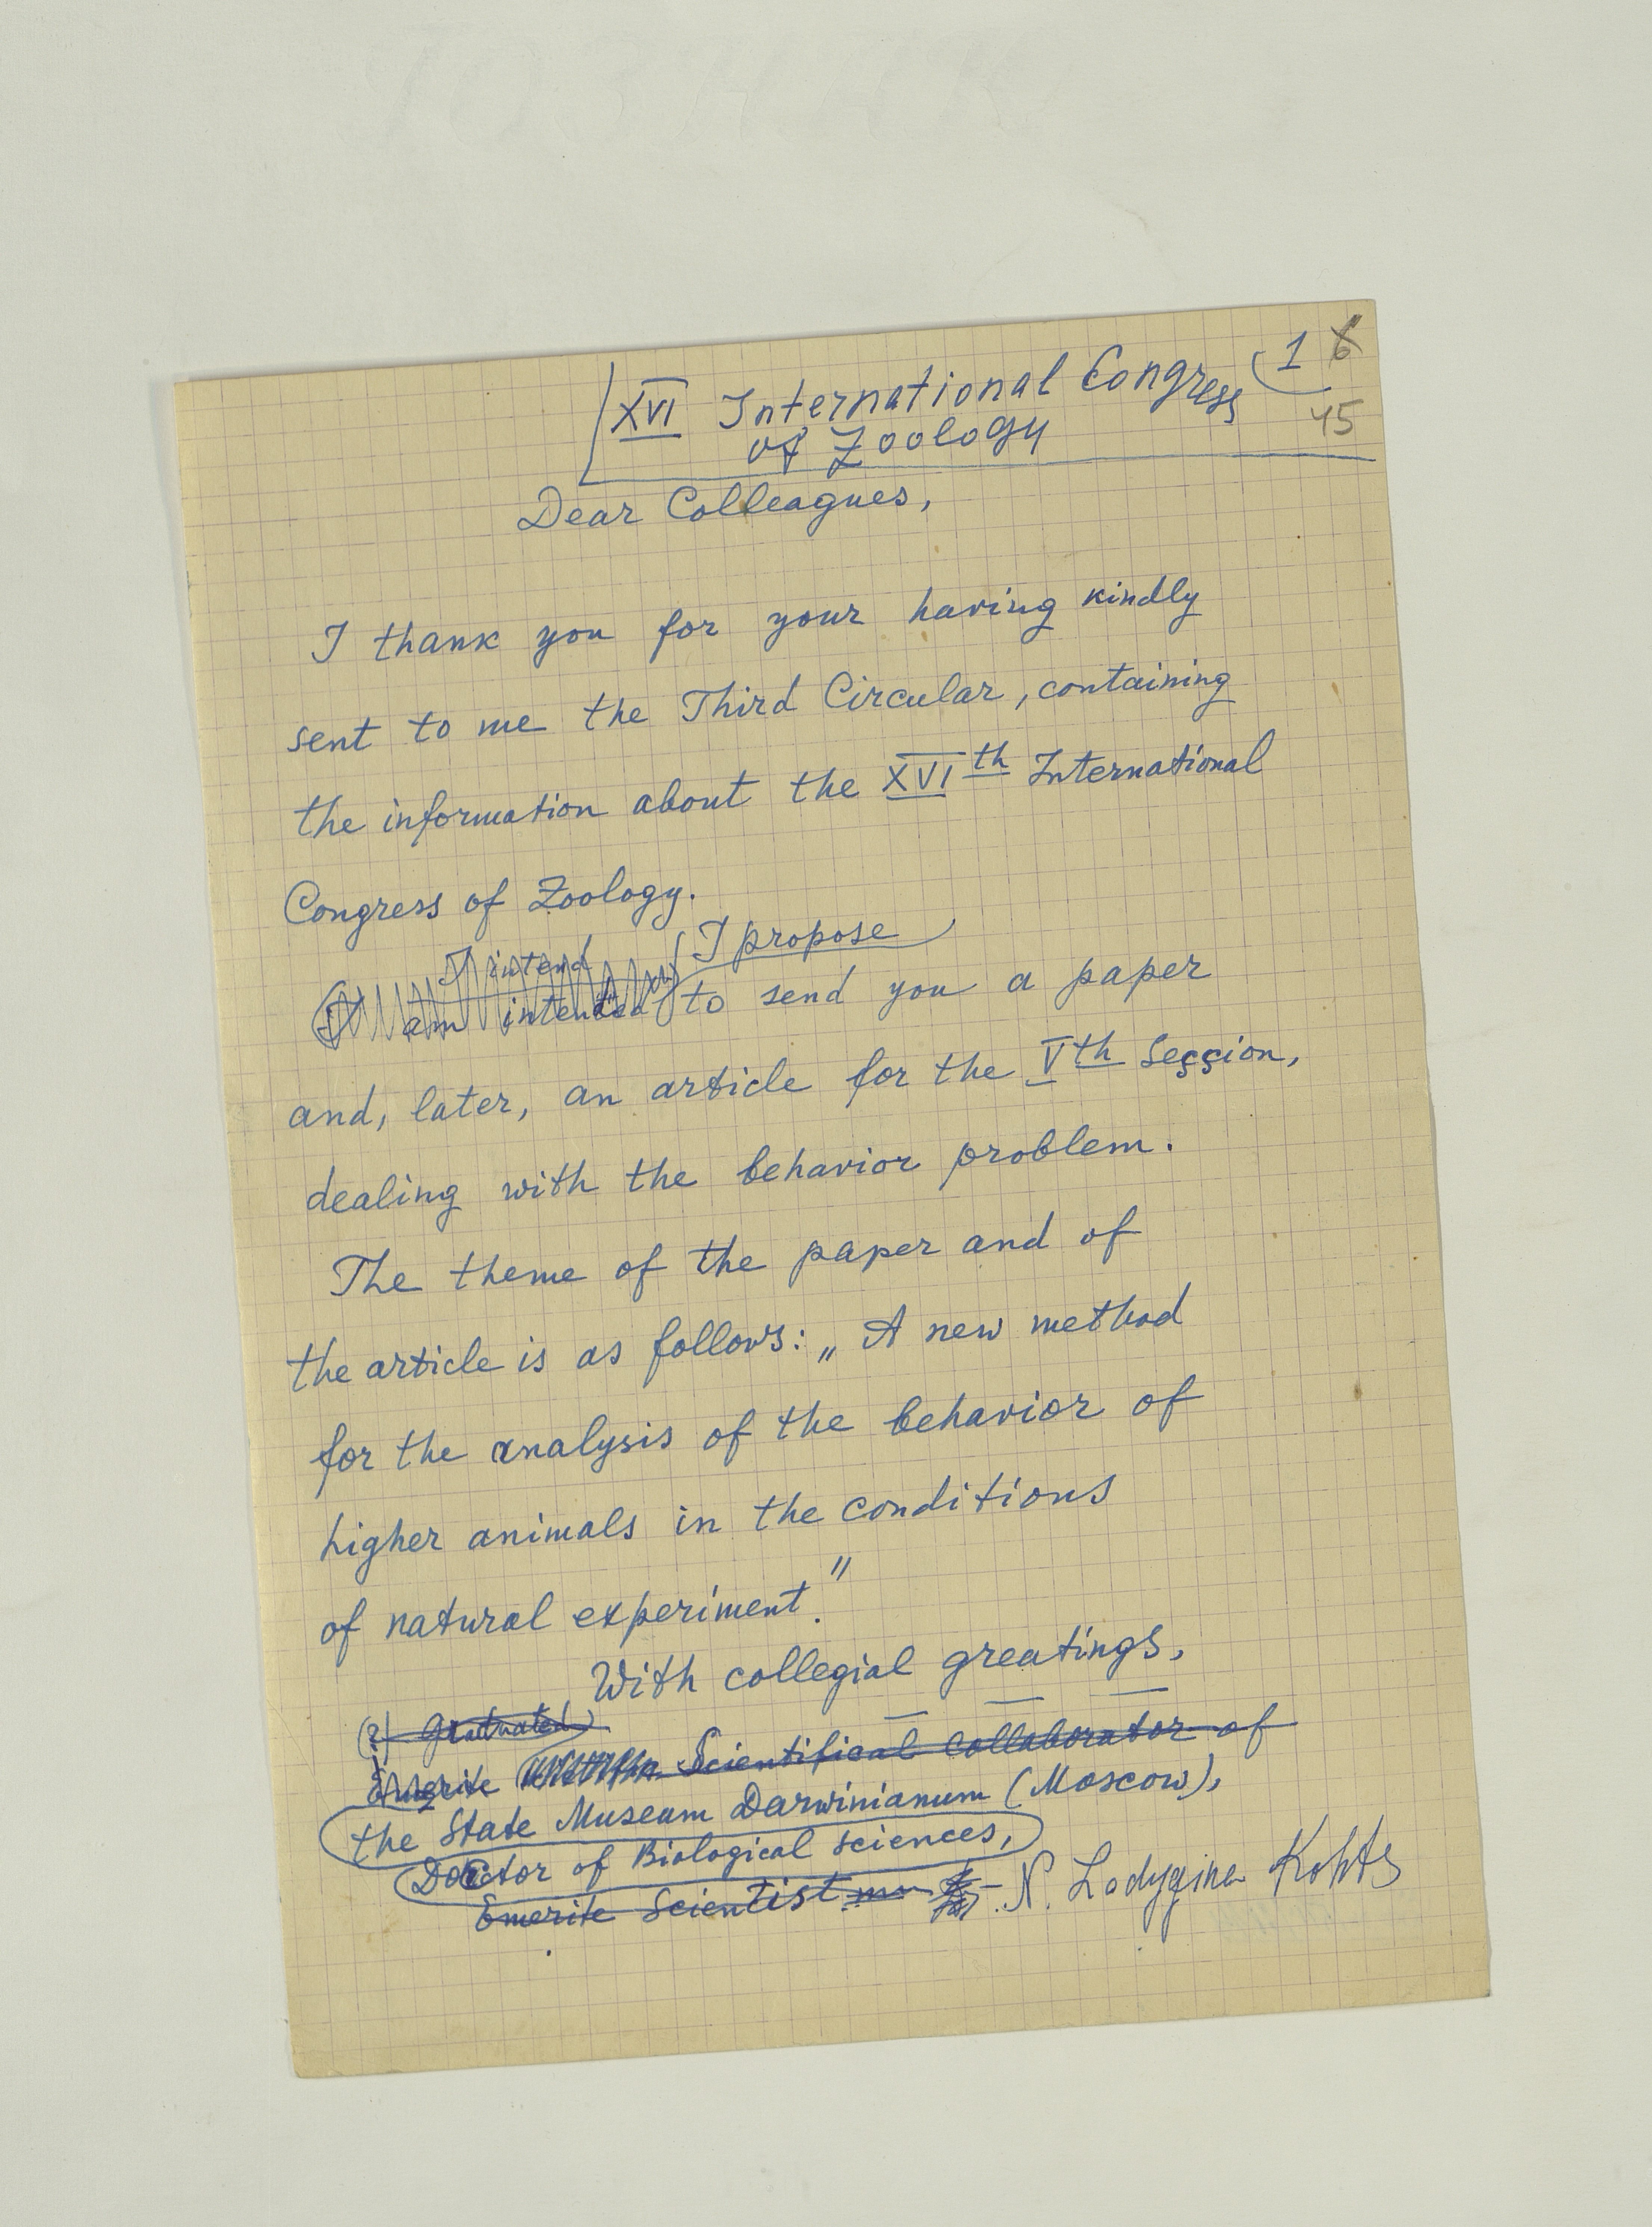 XVI International Congress 1 6
of Zoology 45
Dear Colleagues,
I thank you for your having kindly
sent to me the Third Circular, containing
the information about the XVIth International
Congress of Zoology.
I intend I propose
I am intended to send you a paper
and, later, an article for the Vth Session,
dealing with the behavior problem.
The theme of the paper and of
the article is as follows: „A new method
for the analysis of the behavior of
higher animals in the conditions
of natural experiment."
With collegial greatings,
(?) Graduated)
Emerite Scientifical Collaborator of
the State Museum Darwinianum (Moscow),
Doctor of Biological sciences,
Emerite Scientist N. Ladygina Kohts